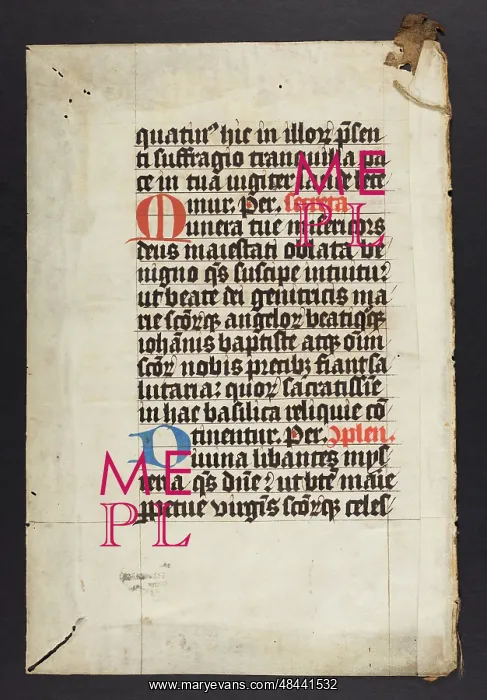 quatiur hic in illoꝝ p̄sen
ti suffragio tranquilla pa
ce in tua iugiter laude lete
mur. Per. secreta
Munera tue misericors
deus maiestati oblata be
nigno q̄s suscipe intuitu ⁊
ut beate dei genitricis ma
rie scōrꝗ angeloꝝ beatiqꝫ
iohānis baptiste atqꝫ oīm
scōꝝ nobis precibꝫ fiant sa
lutaria: quoꝝ sacratissīe
in hac basilica reliquie cō
tinentur. Per. ꝯplen.
Diuina libantes mys
teria q̄s dn̄e: ut bt̄e marie
ꝑpetue virgīs scōrꝗ celes
ME
PL
ME
PL
www.maryevans.com/48441532